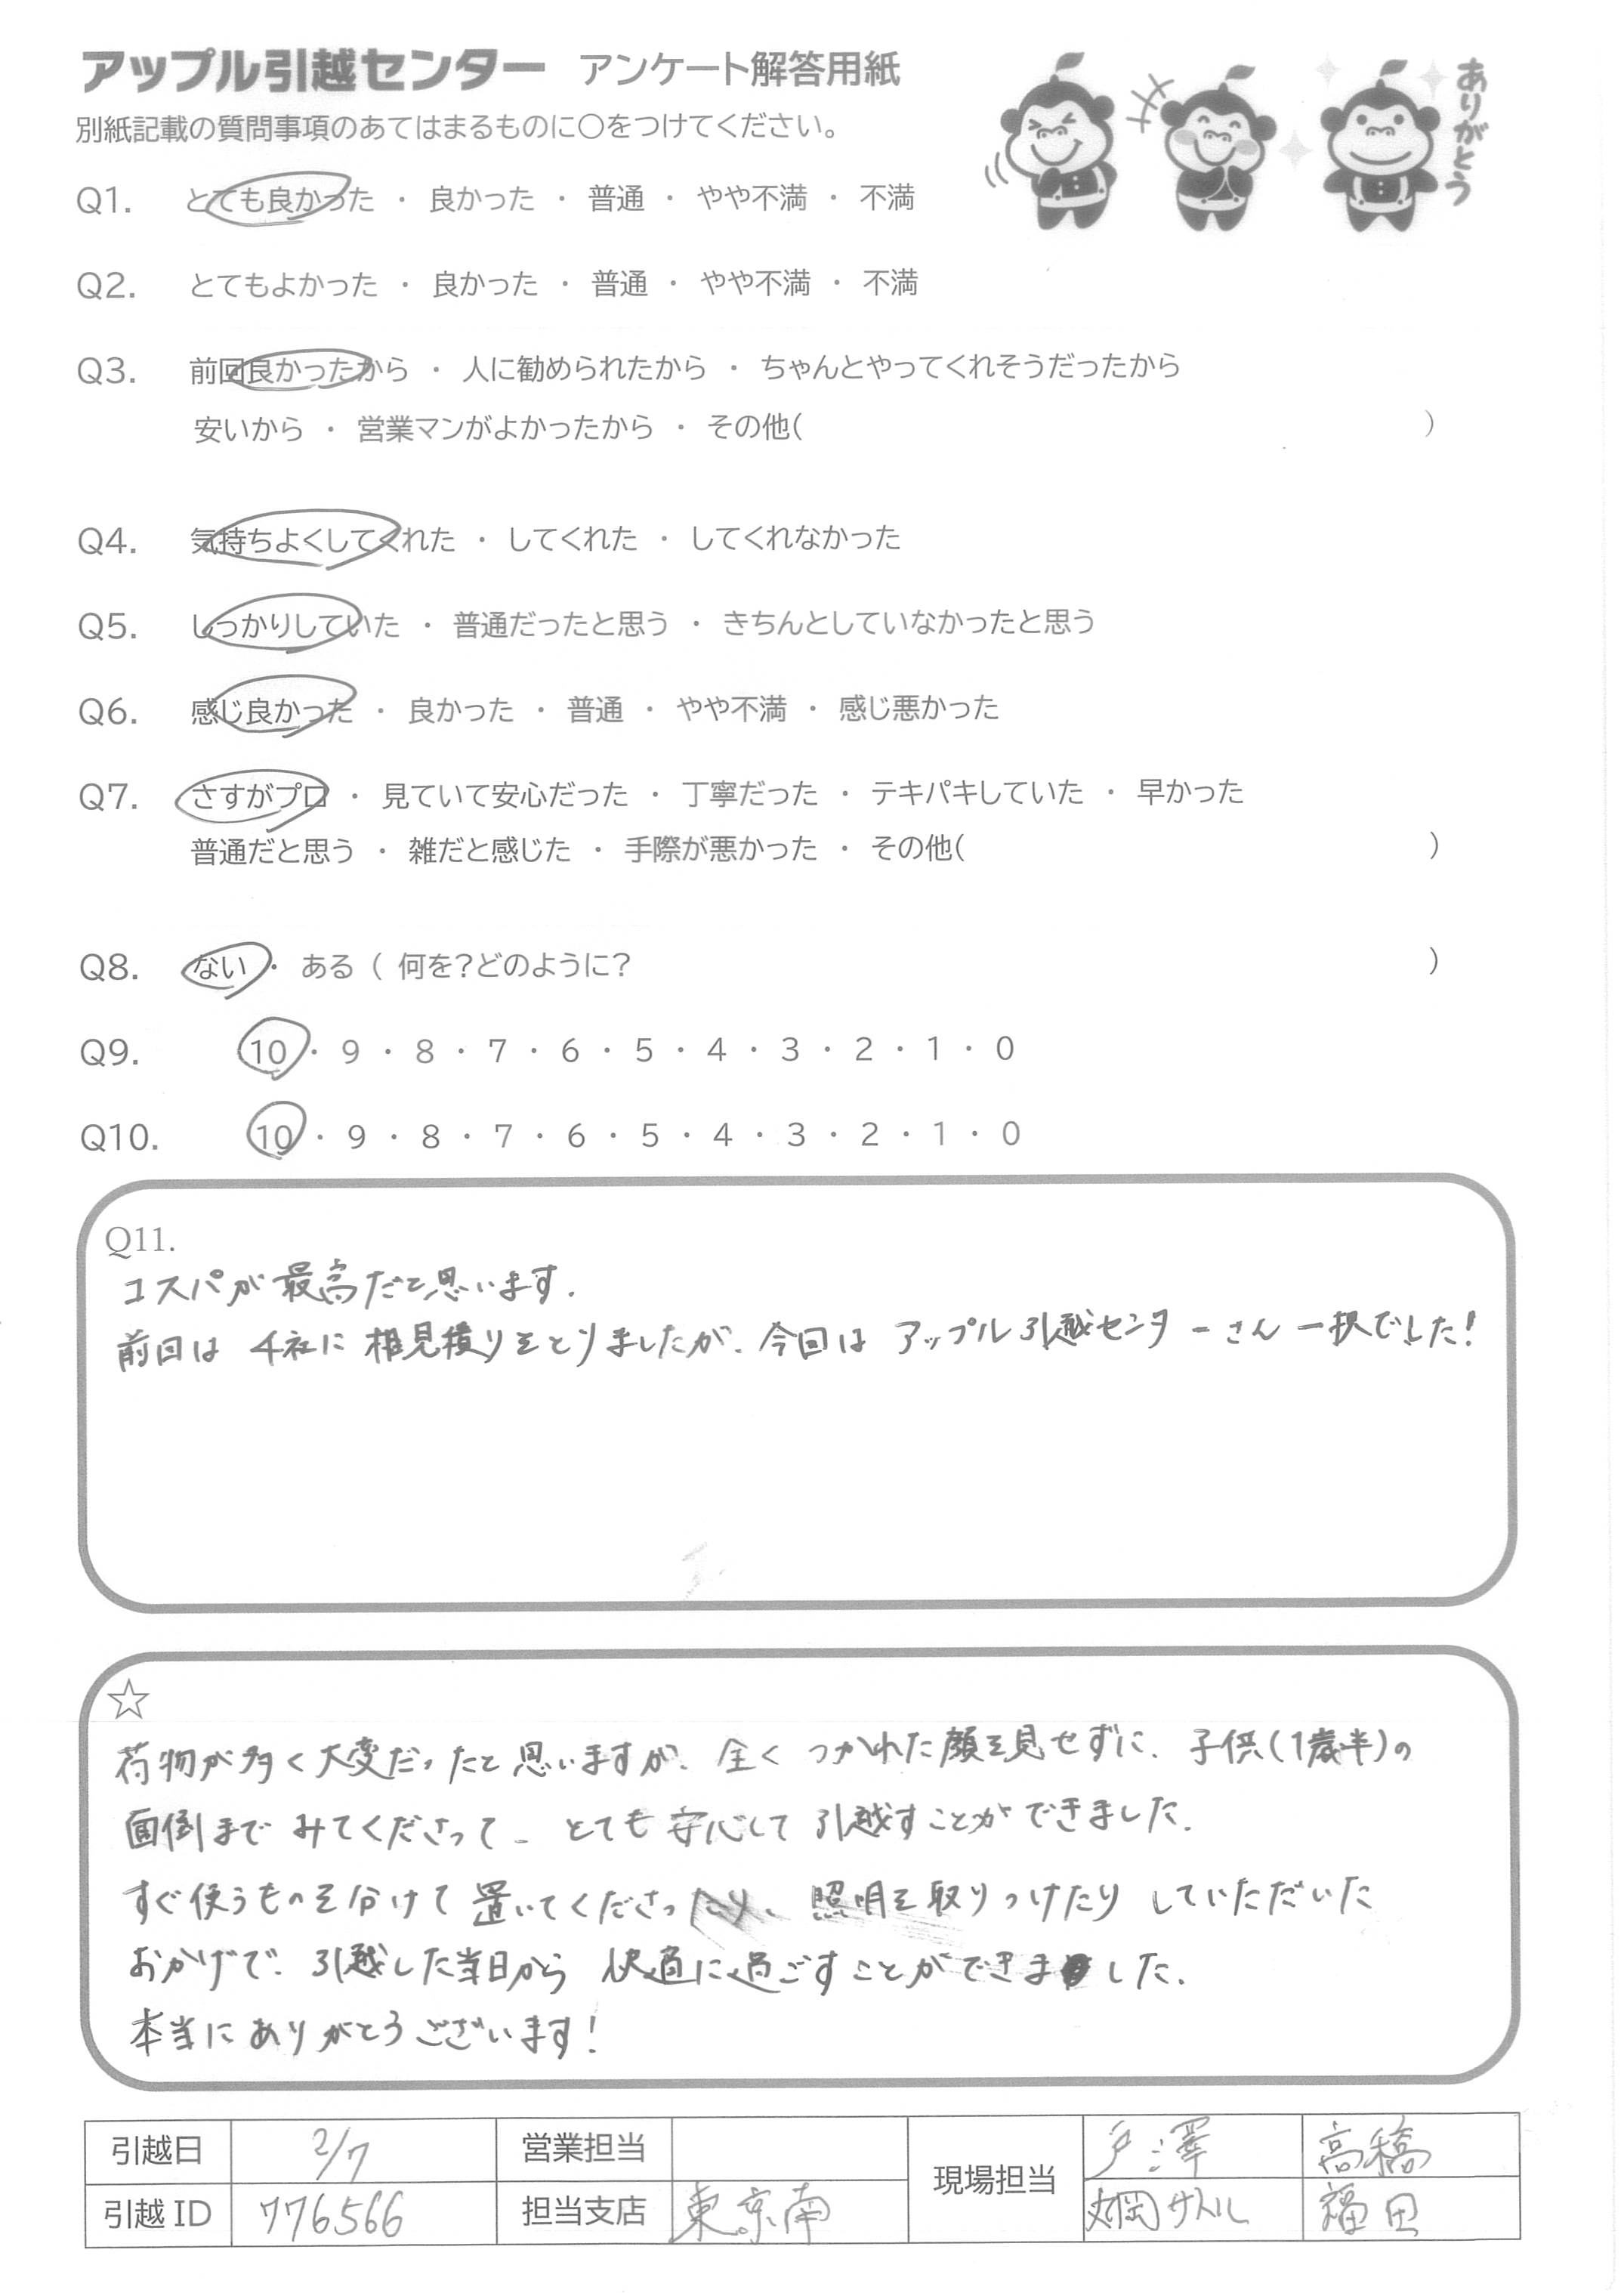 アップル引越センター アンケート解答用紙
ありがとう
別紙記載の質問事項のあてはまるものに〇をつけてください。
Q1. とても良かった ・ 良かった ・ 普通 ・ やや不満 ・ 不満
Q2. とてもよかった ・ 良かった ・ 普通 ・ やや不満 ・ 不満
Q3. 前回良かったから ・ 人に勧められたから ・ ちゃんとやってくれそうだったから
安いから ・ 営業マンがよかったから ・ その他( )
Q4. 気持ちよくしてくれた ・ してくれた ・ してくれなかった
Q5. しっかりしていた ・ 普通だったと思う ・ きちんとしていなかったと思う
Q6. 感じ良かった ・ 良かった ・ 普通 ・ やや不満 ・ 感じ悪かった
Q7. さすがプロ ・ 見ていて安心だった ・ 丁寧だった ・ テキパキしていた ・ 早かった
普通だと思う ・ 雑だと感じた ・ 手際が悪かった ・ その他( )
Q8. ない ・ ある ( 何を?どのように? )
Q9. 10 ・ 9 ・ 8 ・ 7 ・ 6 ・ 5 ・ 4 ・ 3 ・ 2 ・ 1 ・ 0
Q10. 10 ・ 9 ・ 8 ・ 7 ・ 6 ・ 5 ・ 4 ・ 3 ・ 2 ・ 1 ・ 0
Q11.
コスパが最高だと思います.
前回は 4社に 相見積りをとりましたが、今回は アップル引越センターさん 一択でした!
☆
荷物が多く大変だったと思いますが、全く つかれた顔を見せずに、子供(1歳半)の
面倒まで みてくださって、とても安心して引越すことができました.
すぐ使うものを分けて 置いてくださったり、照明を取りつけたり していただいた
おかげで、引越した当日から 快適に過ごすことができました.
本当にありがとうございます!
引越日 2/7 営業担当 現場担当 戸澤 高橋
引越ID 776566 担当支店 東京南 サトル 福田